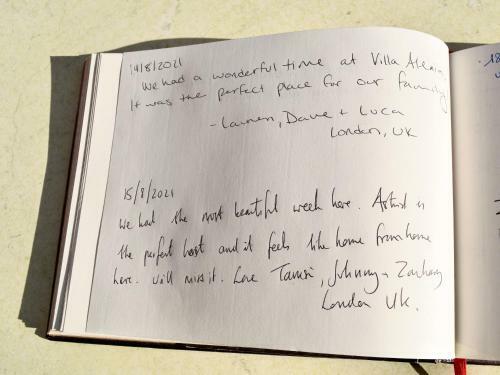 14/8/2021
We had a wonderful time at Villa
It was the perfect place for our family
- Lauren, Dave + Luca
London, UK
15/8/2021
We had the most beautiful week here. is
the perfect host and it feels like home from home
here. Will miss it. Love Johnny + Zachary
London UK.
18